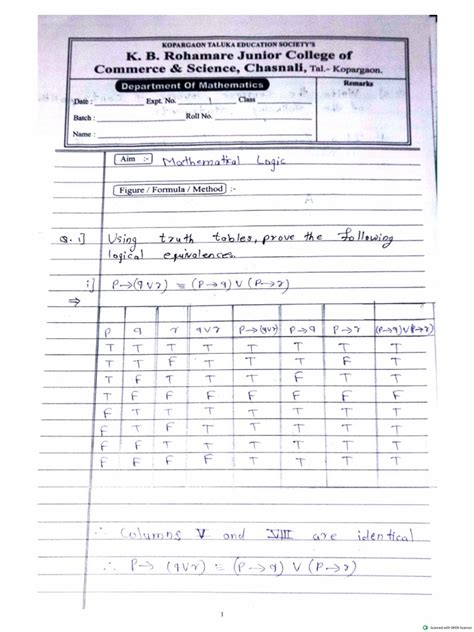 KOPARGAON TALUKA EDUCATION SOCIETY'S
K. B. Rohamare Junior College of
Commerce & Science, Chasnali, Tal.- Kopargaon.
Department Of Mathematics
Remarks
Date : Expt. No. 1 Class
Batch : Roll No.
Name :
Aim :- Mathematical Logic
Figure / Formula / Method :-
Q. 1] Using truth tables, prove the following
logical equivalences.
i] P→(q∨r) ≡ (P→q) ∨ (P→r)
⇒
P q r q∨r P→(q∨r) P→q P→r (P→q)∨(P→r)
T T T T T T T T
T T F T T T F T
T F T T T F T T
T F F F F F F F
F T T T T T T T
F T F T T T T T
F F T T T T T T
F F F F T T T T
∴ Columns V and VIII are identical
∴ P→ (q∨r) ≡ (P→q) ∨ (P→r)
1
Scanned with OKEN Scanner